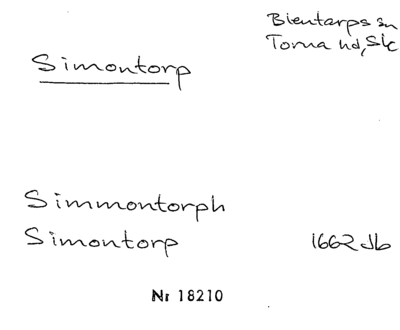 Blentarps sn
Torna hd, Sk
Simontorp
Simmontorph
Simontorp 1662 Jb
Nr 18210